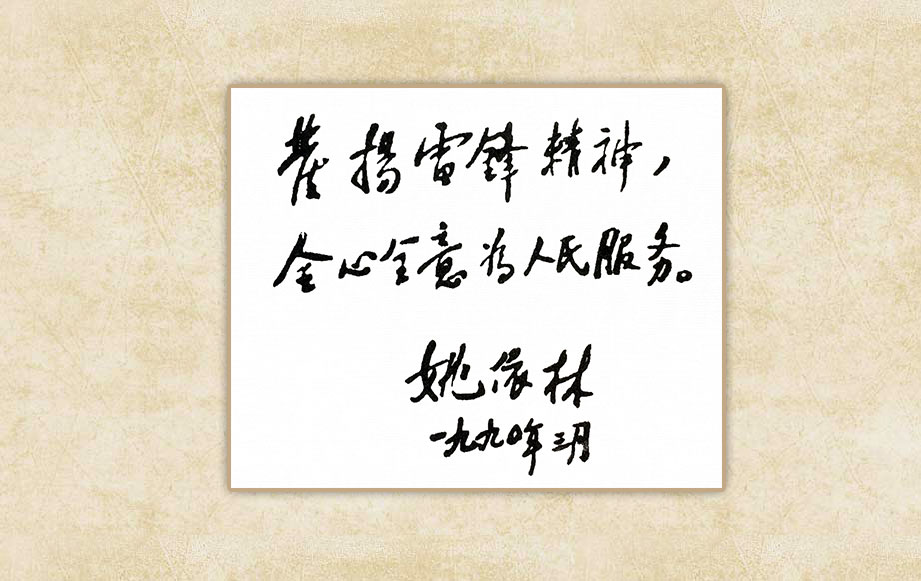 發揚雷鋒精神，
全心全意为人民服务。
姚依林
一九九〇年三月